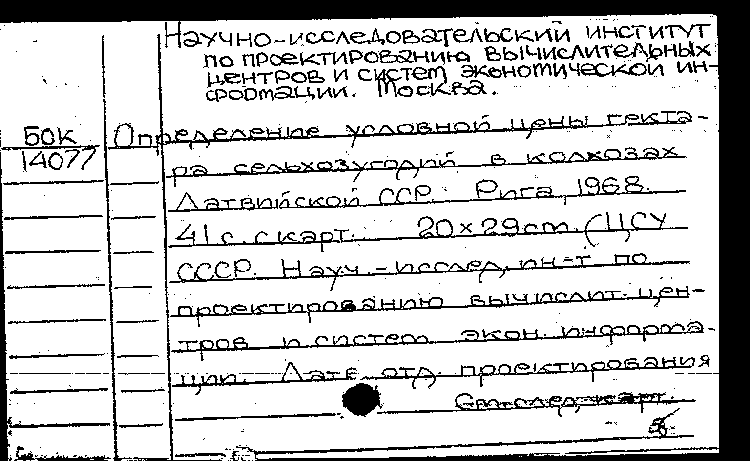 Научно-исследовательский институт
по проектированию вычислительных
центров и систем экономической ин-
формации. Москва.
БОК
14077
Определение условной цены гекта-
ра сельхозугодий в колхозах
Латвийской ССР. Рига, 1968.
41 с. с карт. 20×29 cm. (ЦСУ
СССР. Науч.-исслед. ин-т по
проектированию вычислит. цен-
тров и систем экон. информа-
ции. Латв. отд. проектирования
См. след. карт.